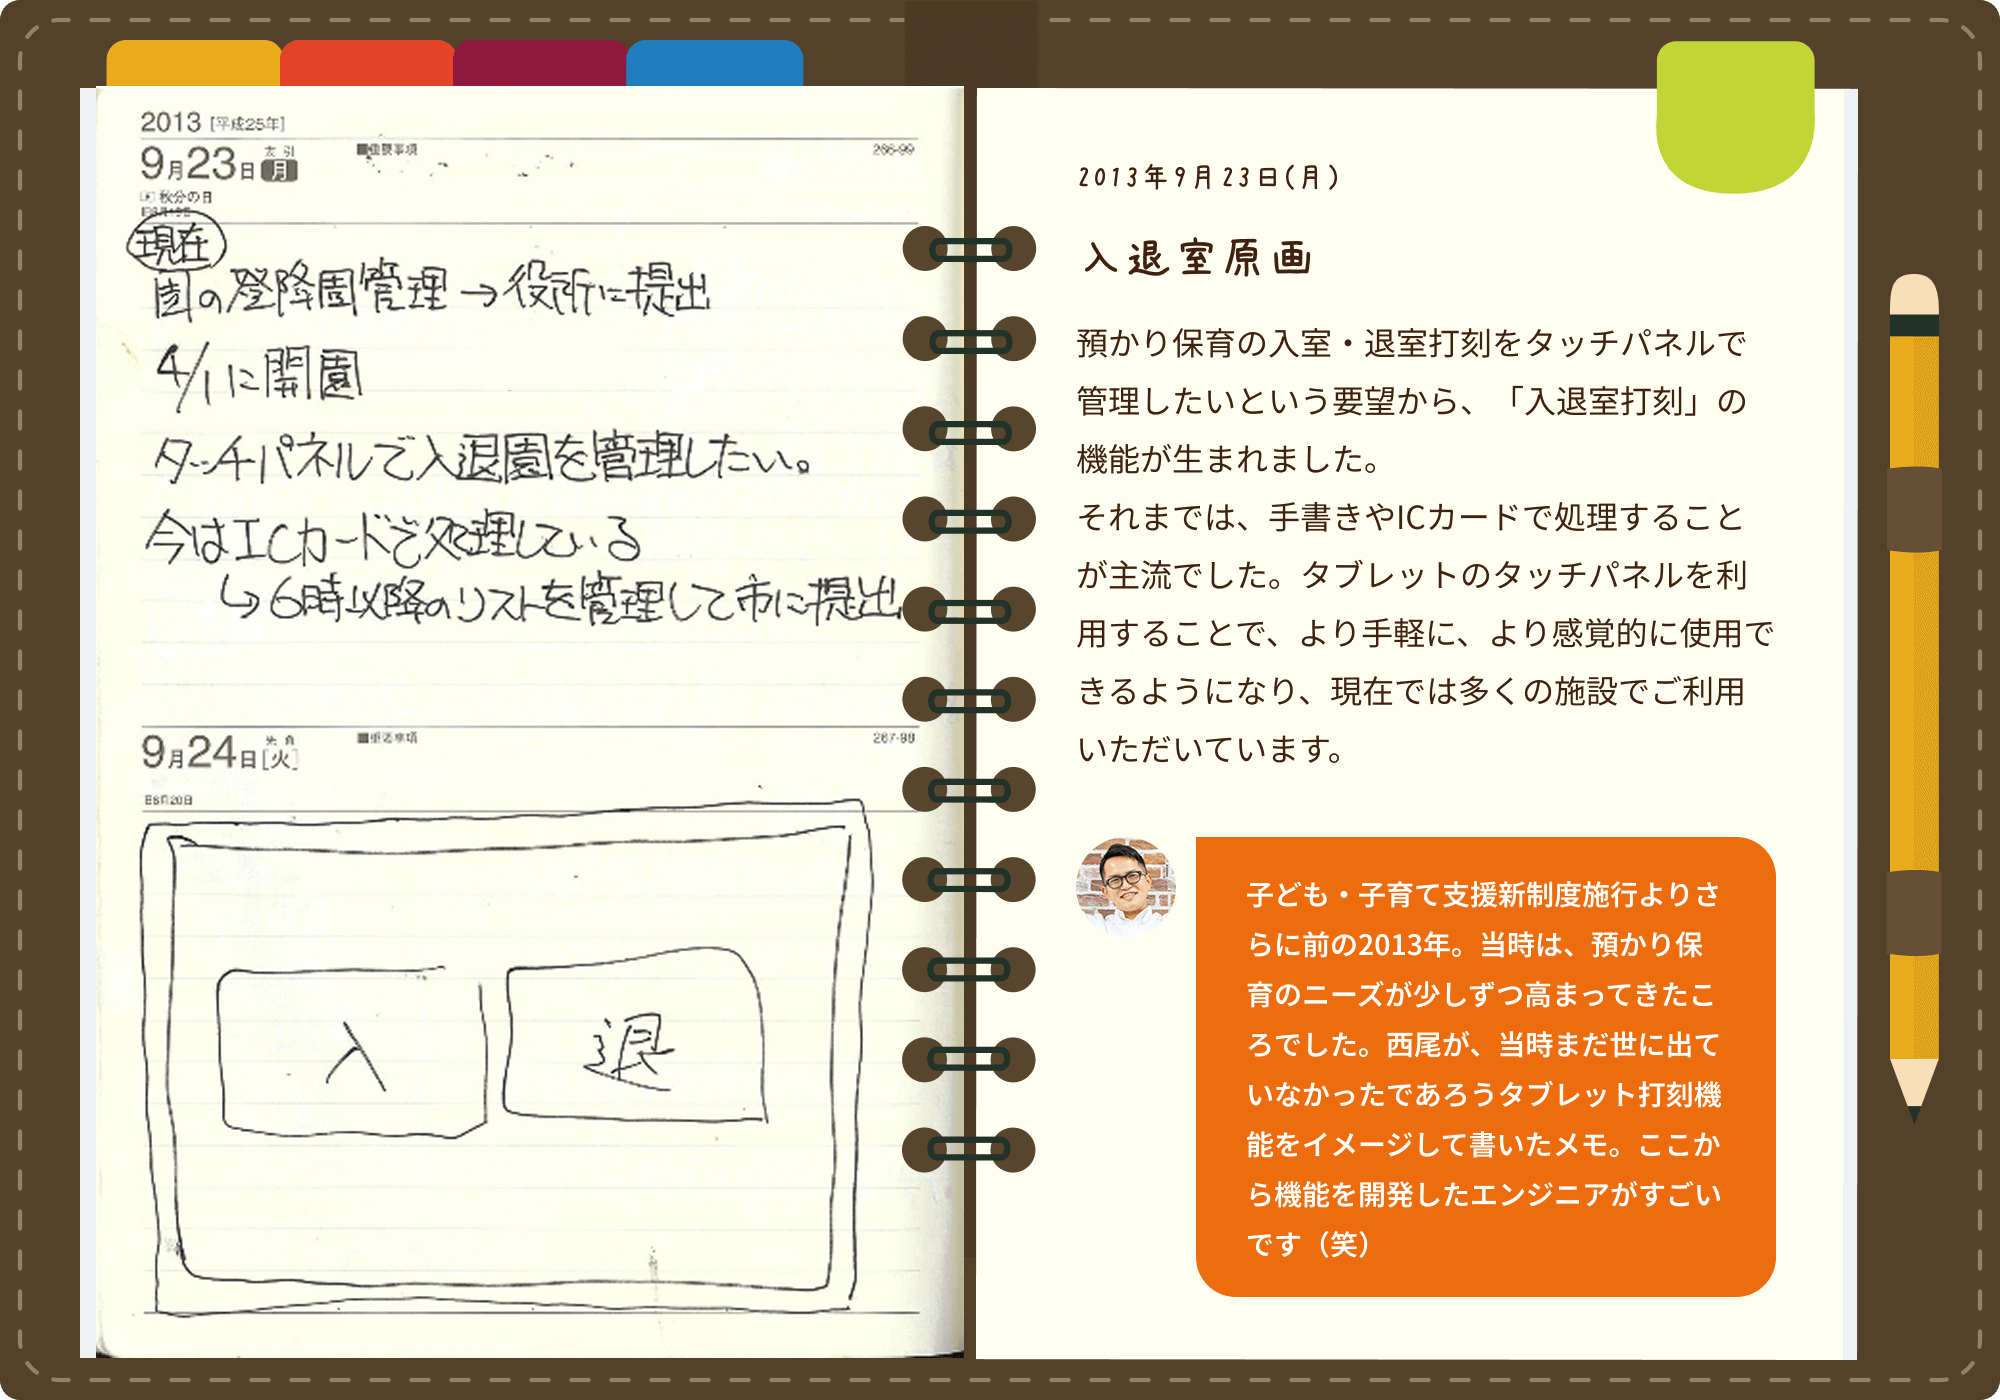 2013 [平成25年]
9月23日 月 友引 ■重要事項 266-99
秋分の日
現在
園の登降園管理→役所に提出
4/1に開園
タッチパネルで入退園を管理したい。
今はICカードで処理している
↳6時以降のリストを管理して市に提出
9月24日[火] 先負 ■重要事項 267-98
旧8月20日
入 退
2013年9月23日(月)
入退室原画
預かり保育の入室・退室打刻をタッチパネルで
管理したいという要望から、「入退室打刻」の
機能が生まれました。
それまでは、手書きやICカードで処理すること
が主流でした。タブレットのタッチパネルを利
用することで、より手軽に、より感覚的に使用で
きるようになり、現在では多くの施設でご利用
いただいています。
子ども・子育て支援新制度施行よりさ
らに前の2013年。当時は、預かり保
育のニーズが少しずつ高まってきたこ
ろでした。西尾が、当時まだ世に出て
いなかったであろうタブレット打刻機
能をイメージして書いたメモ。ここか
ら機能を開発したエンジニアがすごい
です（笑）